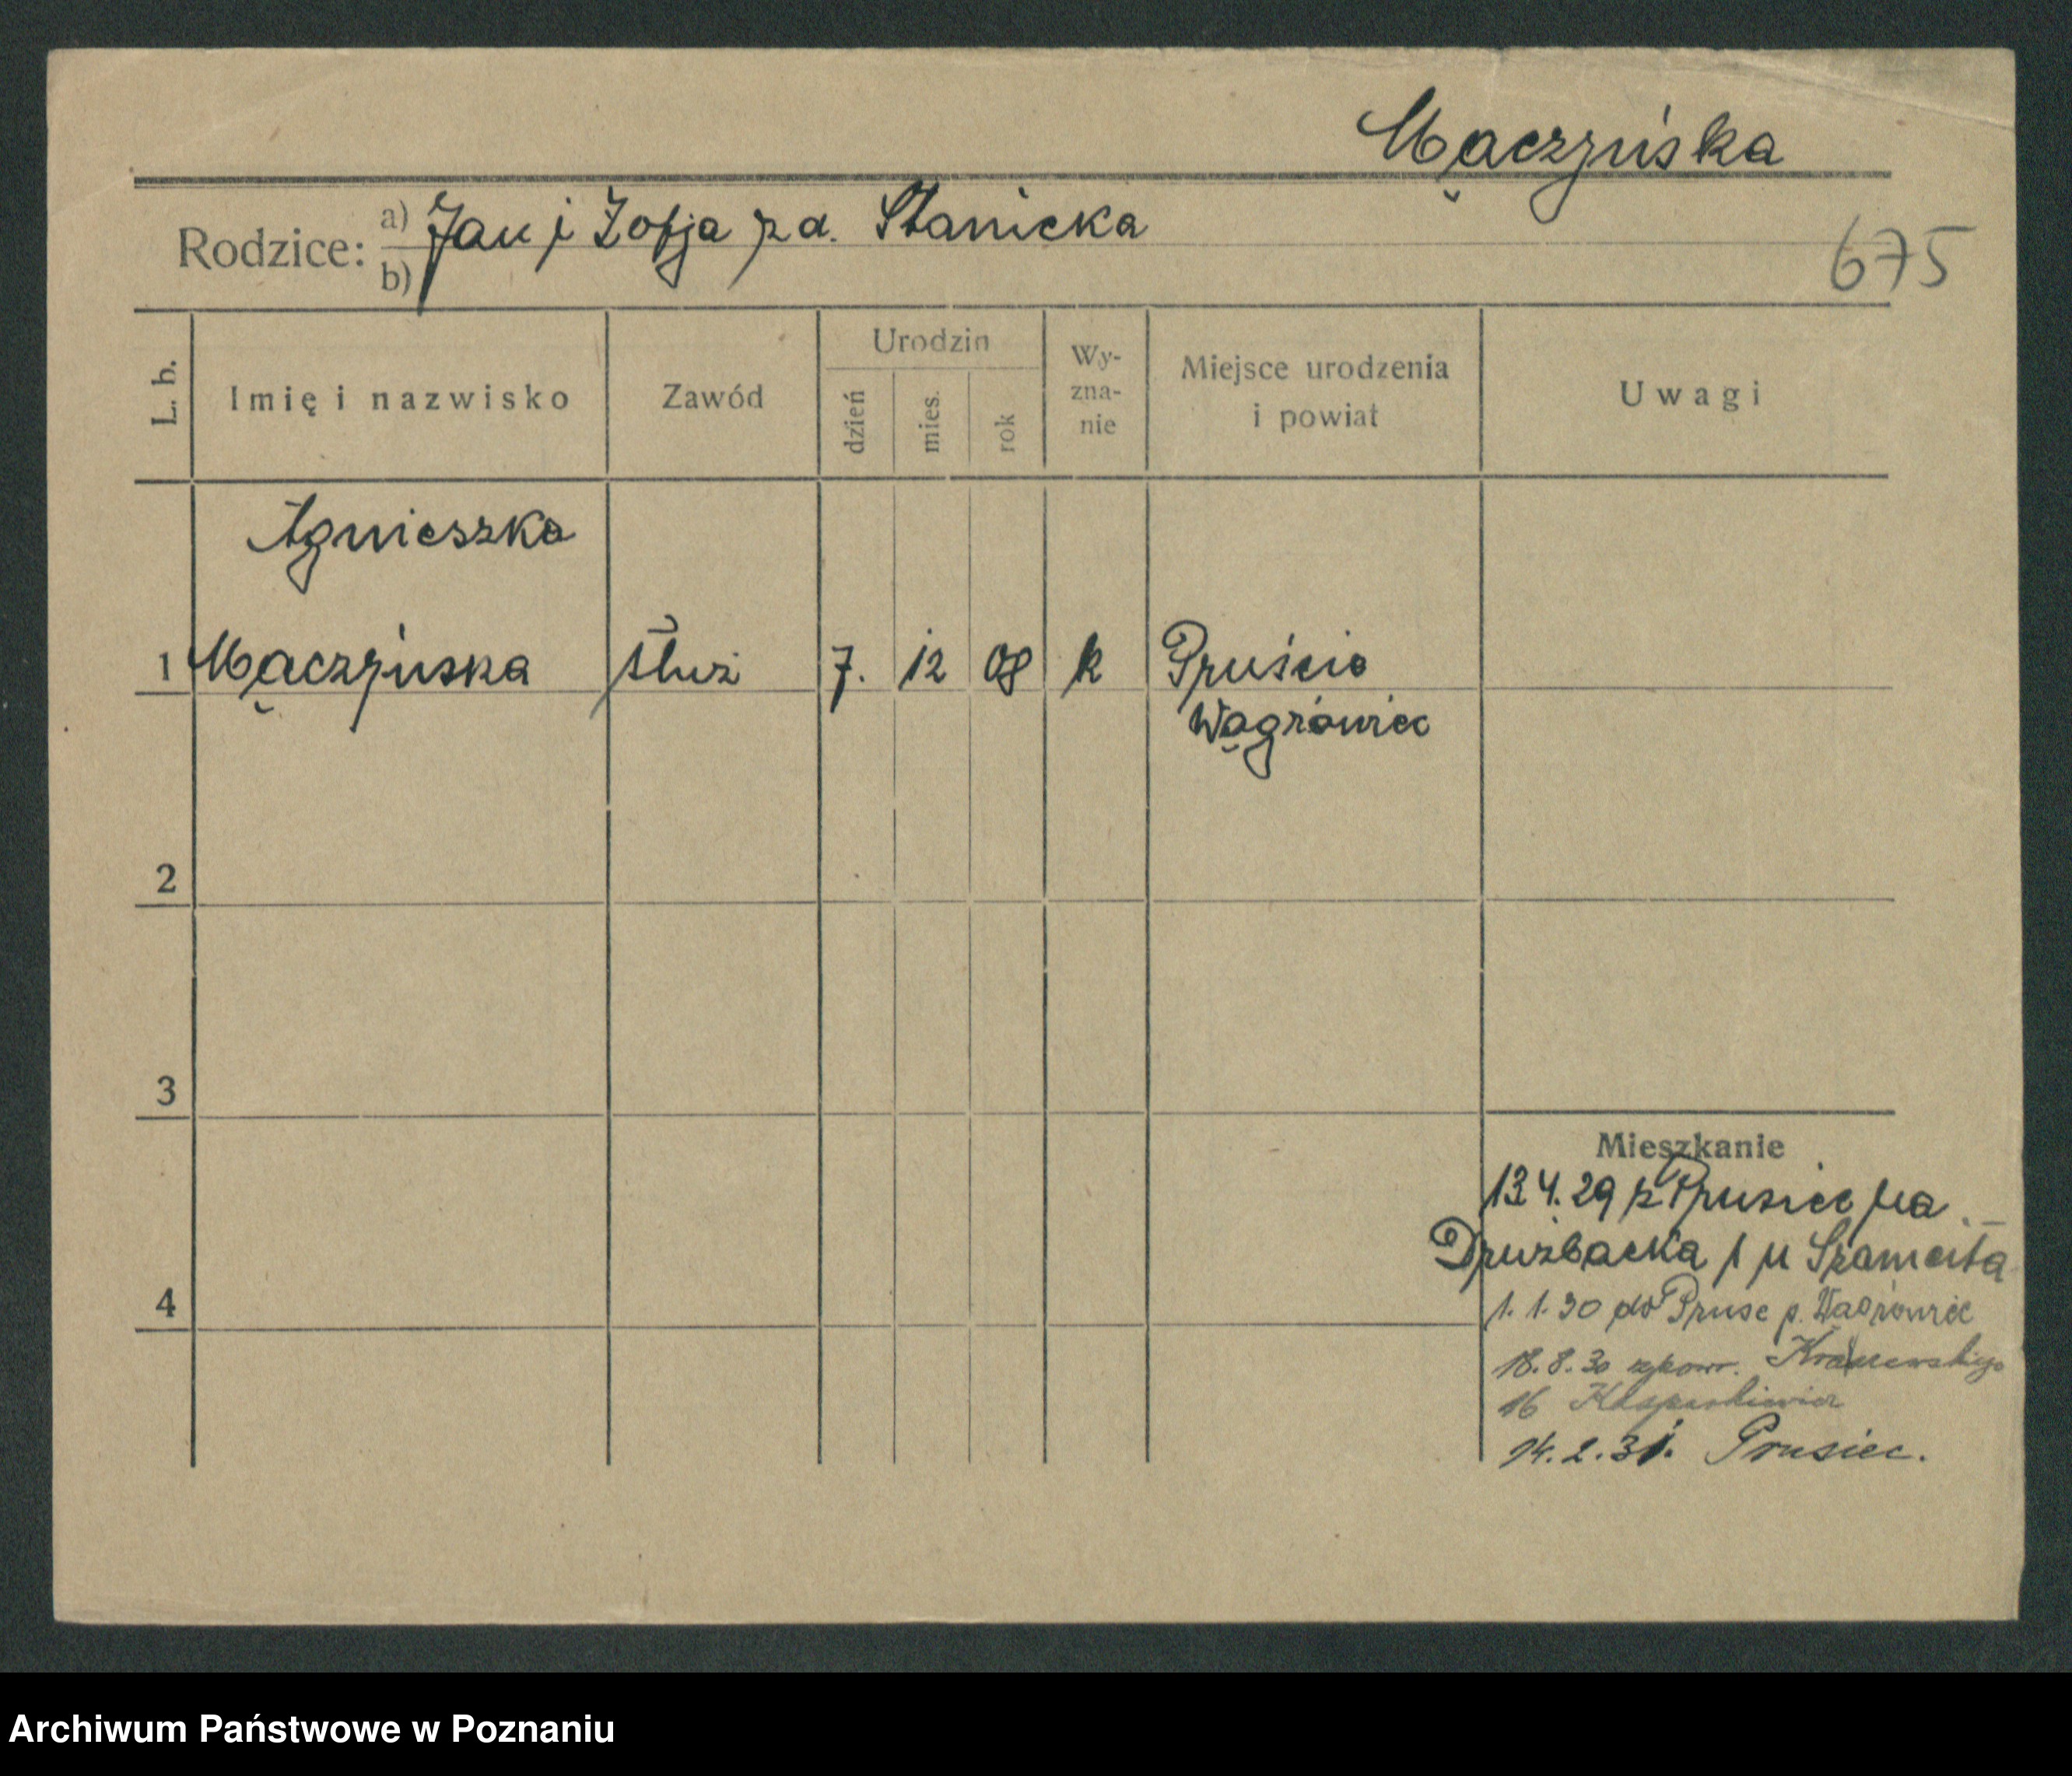 Mączyńska
Rodzice: a) b) Jan i Zofja zd. Stanicka
675
L. b.
Imię i nazwisko
Zawód
Urodzin
dzień
mies.
rok
Wy-
zna-
nie
Miejsce urodzenia
i powiat
Uwagi
Agnieszka
1 Mączyńska służ 7. 12 08 k Pruście
Wągrówiec
2
3
Mieszkanie
13.4.29 z Prusiec na
Drużbacka 1 u Szameita
4
1.1.30 do Pruse p. Wągrówiec
18.8.30 zpowr. Kraszewskiego
16
14.2.31. Prusiec.
Archiwum Państwowe w Poznaniu